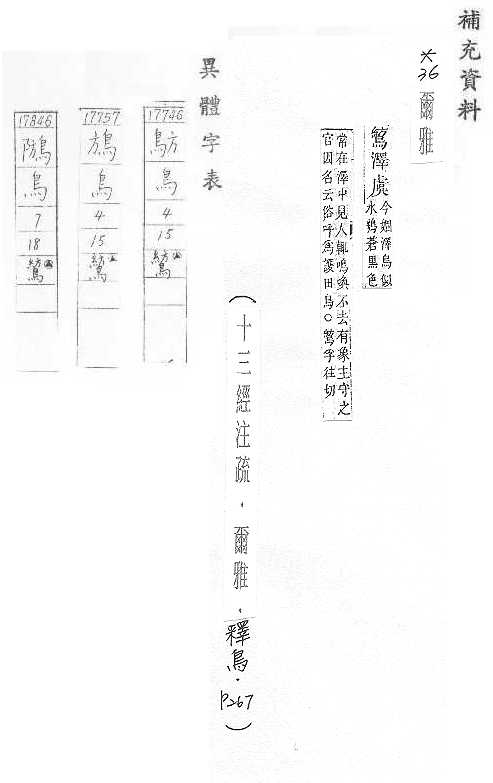 補充資料
※36 爾雅
鶭澤虞
今婟澤鳥似
水鴞蒼黑色
常在澤中見人輒鳴喚不去有象主守之
官因名云俗呼為護田鳥○鶭孚往切
(十三經注疏．爾雅．釋鳥．P267)
異體字表
17746
鳥
4
15
鶭
17757
鴋
鳥
4
15
鶭
17846
鳥
7
18
鶭